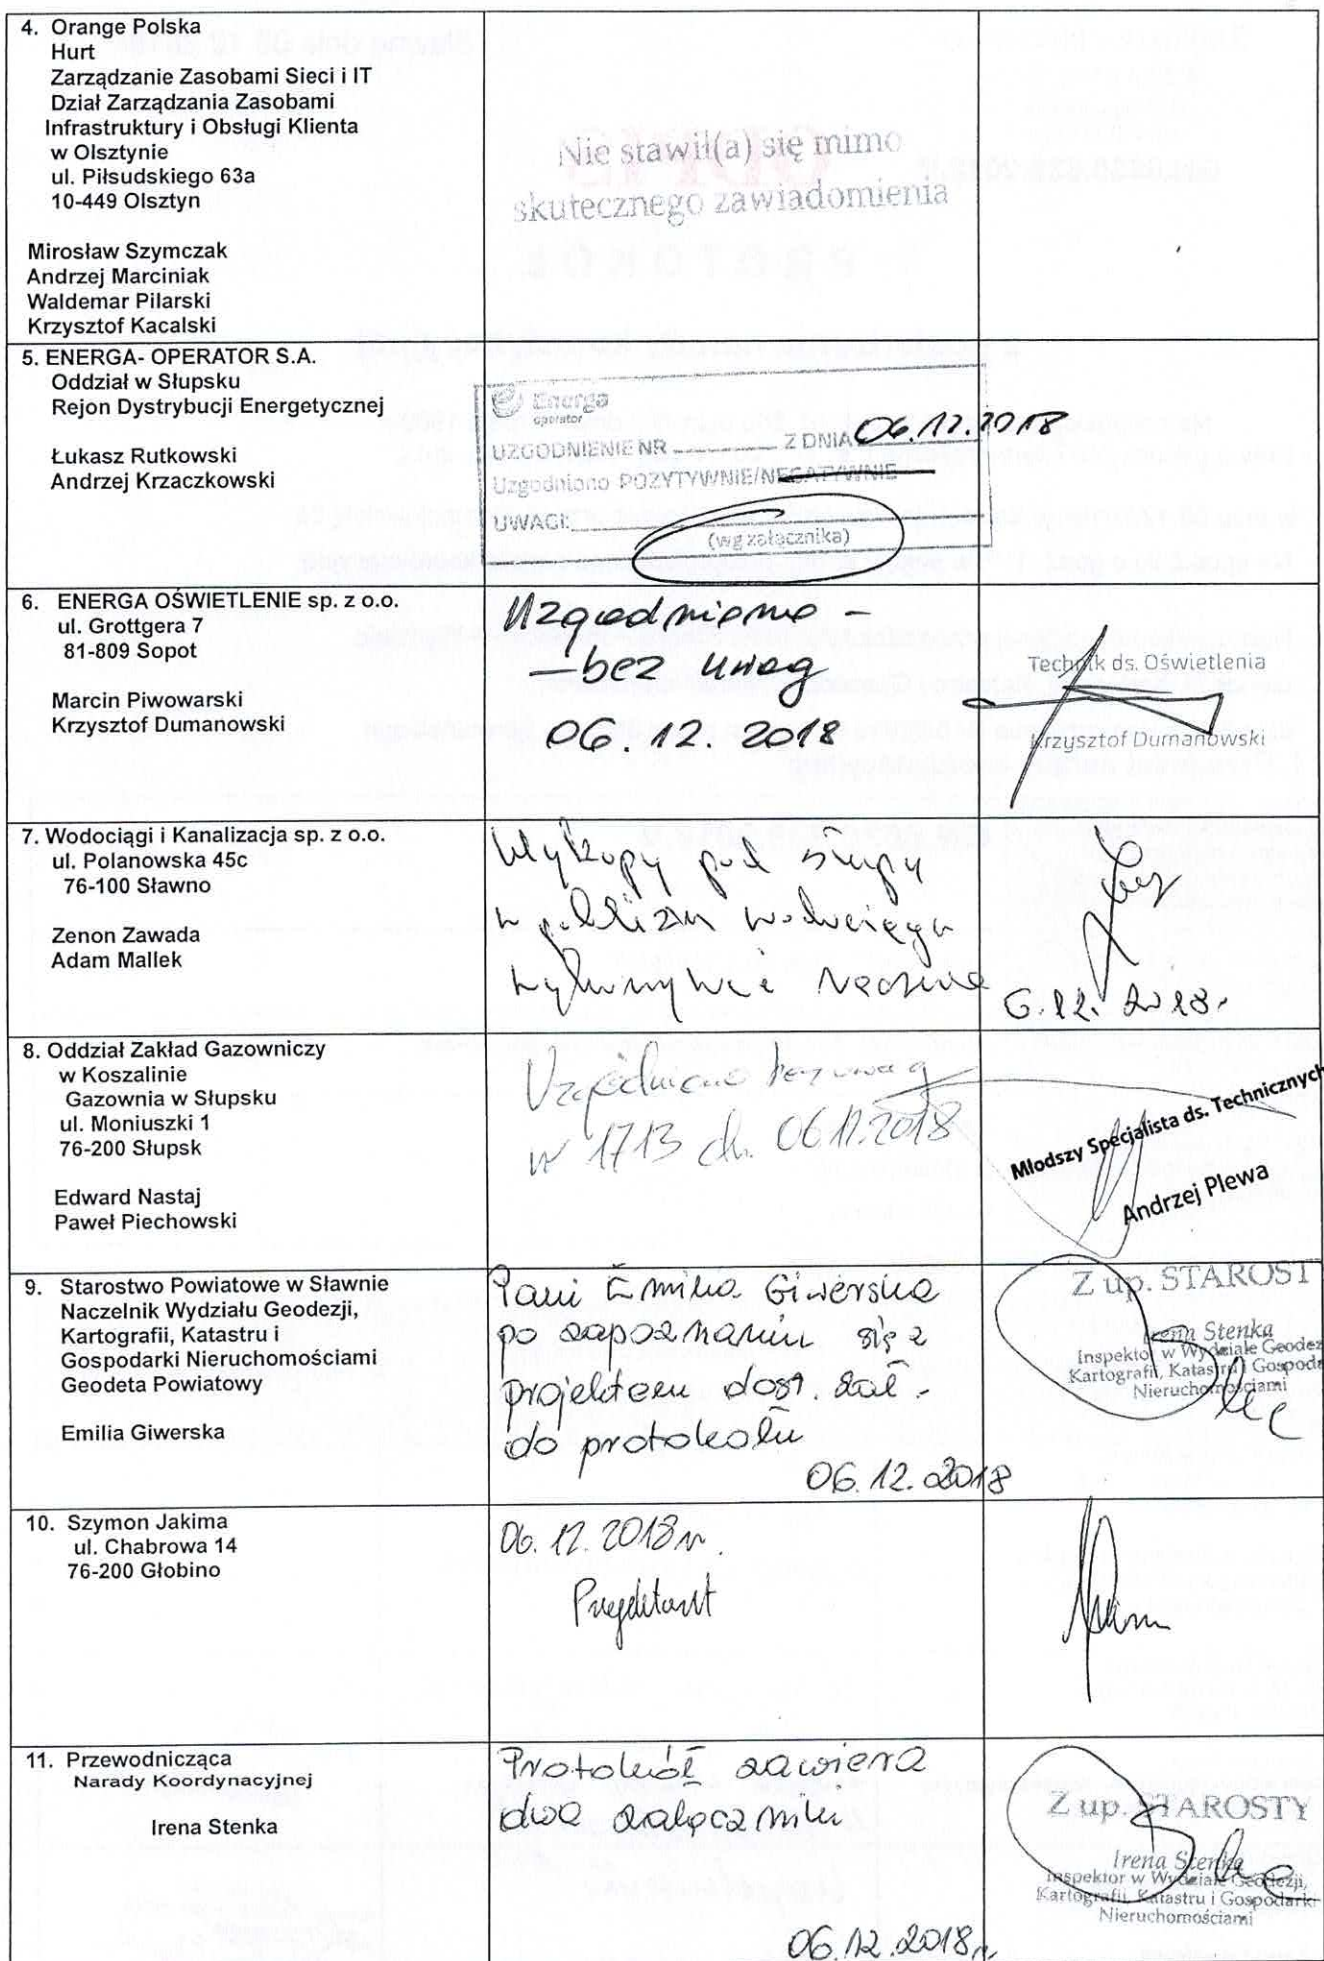 4. Orange Polska
Hurt
Zarządzanie Zasobami Sieci i IT
Dział Zarządzania Zasobami
Infrastruktury i Obsługi Klienta
w Olsztynie
ul. Piłsudskiego 63a
10-449 Olsztyn
Mirosław Szymczak
Andrzej Marciniak
Waldemar Pilarski
Krzysztof Kacalski
Nie stawił(a) się mimo
skutecznego zawiadomienia
5. ENERGA- OPERATOR S.A.
Oddział w Słupsku
Rejon Dystrybucji Energetycznej
Łukasz Rutkowski
Andrzej Krzaczkowski
Energa
operator
UZGODNIENIE NR Z DNIA 06.12.2018
Uzgodniono POZYTYWNIE/NEGATYWNIE
UWAGI:
(wg załącznika)
6. ENERGA OŚWIETLENIE sp. z o.o.
ul. Grottgera 7
81-809 Sopot
Marcin Piwowarski
Krzysztof Dumanowski
Uzgodniono -
- bez uwag
06.12.2018
Technik ds. Oświetlenia
Krzysztof Dumanowski
7. Wodociągi i Kanalizacja sp. z o.o.
ul. Polanowska 45c
76-100 Sławno
Zenon Zawada
Adam Mallek
Wykopy pod słupy
w pobliżu wodociągu
wykonywać ręcznie
6.12.2018.
8. Oddział Zakład Gazowniczy
w Koszalinie
Gazownia w Słupsku
ul. Moniuszki 1
76-200 Słupsk
Edward Nastaj
Paweł Piechowski
Uzgodniono bez uwag
nr 1713 dn. 06.12.2018
Młodszy Specjalista ds. Technicznych
Andrzej Plewa
9. Starostwo Powiatowe w Sławnie
Naczelnik Wydziału Geodezji,
Kartografii, Katastru i
Gospodarki Nieruchomościami
Geodeta Powiatowy
Emilia Giwerska
Pani Emilia Giwerska
po zapoznaniu się z
projektem dost. zał.
do protokołu
06.12.2018
Z up. STAROST
Irena Stenka
Inspektor w Wydziale Geodez
Kartografii, Katastru i Gospoda
Nieruchomościami
10. Szymon Jakima
ul. Chabrowa 14
76-200 Głobino
06.12.2018 r.
Projektant
11. Przewodnicząca
Narady Koordynacyjnej
Irena Stenka
Protokół zawiera
dwa załączniki
06.12.2018 r.
Z up. STAROSTY
Irena Stenka
Inspektor w Wydziale Geodezji,
Kartografii, Katastru i Gospodarki
Nieruchomościami